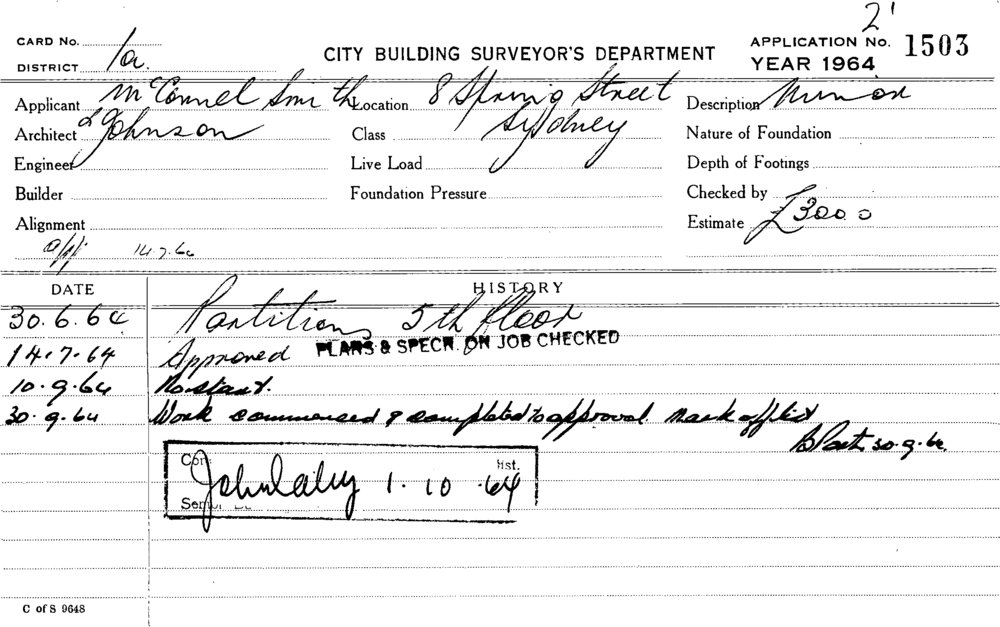 2'
CARD No. CITY BUILDING SURVEYOR'S DEPARTMENT APPLICATION No. 1503
DISTRICT 1a. YEAR 1964
Applicant McConnel Smith Location 8 Spring Street Description Minor
Architect & Johnson Class Sydney Nature of Foundation
Engineer Live Load Depth of Footings
Builder Foundation Pressure Checked by
Alignment Estimate £3000
app 14.7.64
DATE HISTORY
30.6.64 Partitions 5th floor
14.7.64 Approved PLANS & SPECN. ON JOB CHECKED
10.9.64 No start.
30.9.64 Work commenced & completed to approval. Mark off list
30.9.64
Con hist.
1.10.64
Senior
C of S 9648